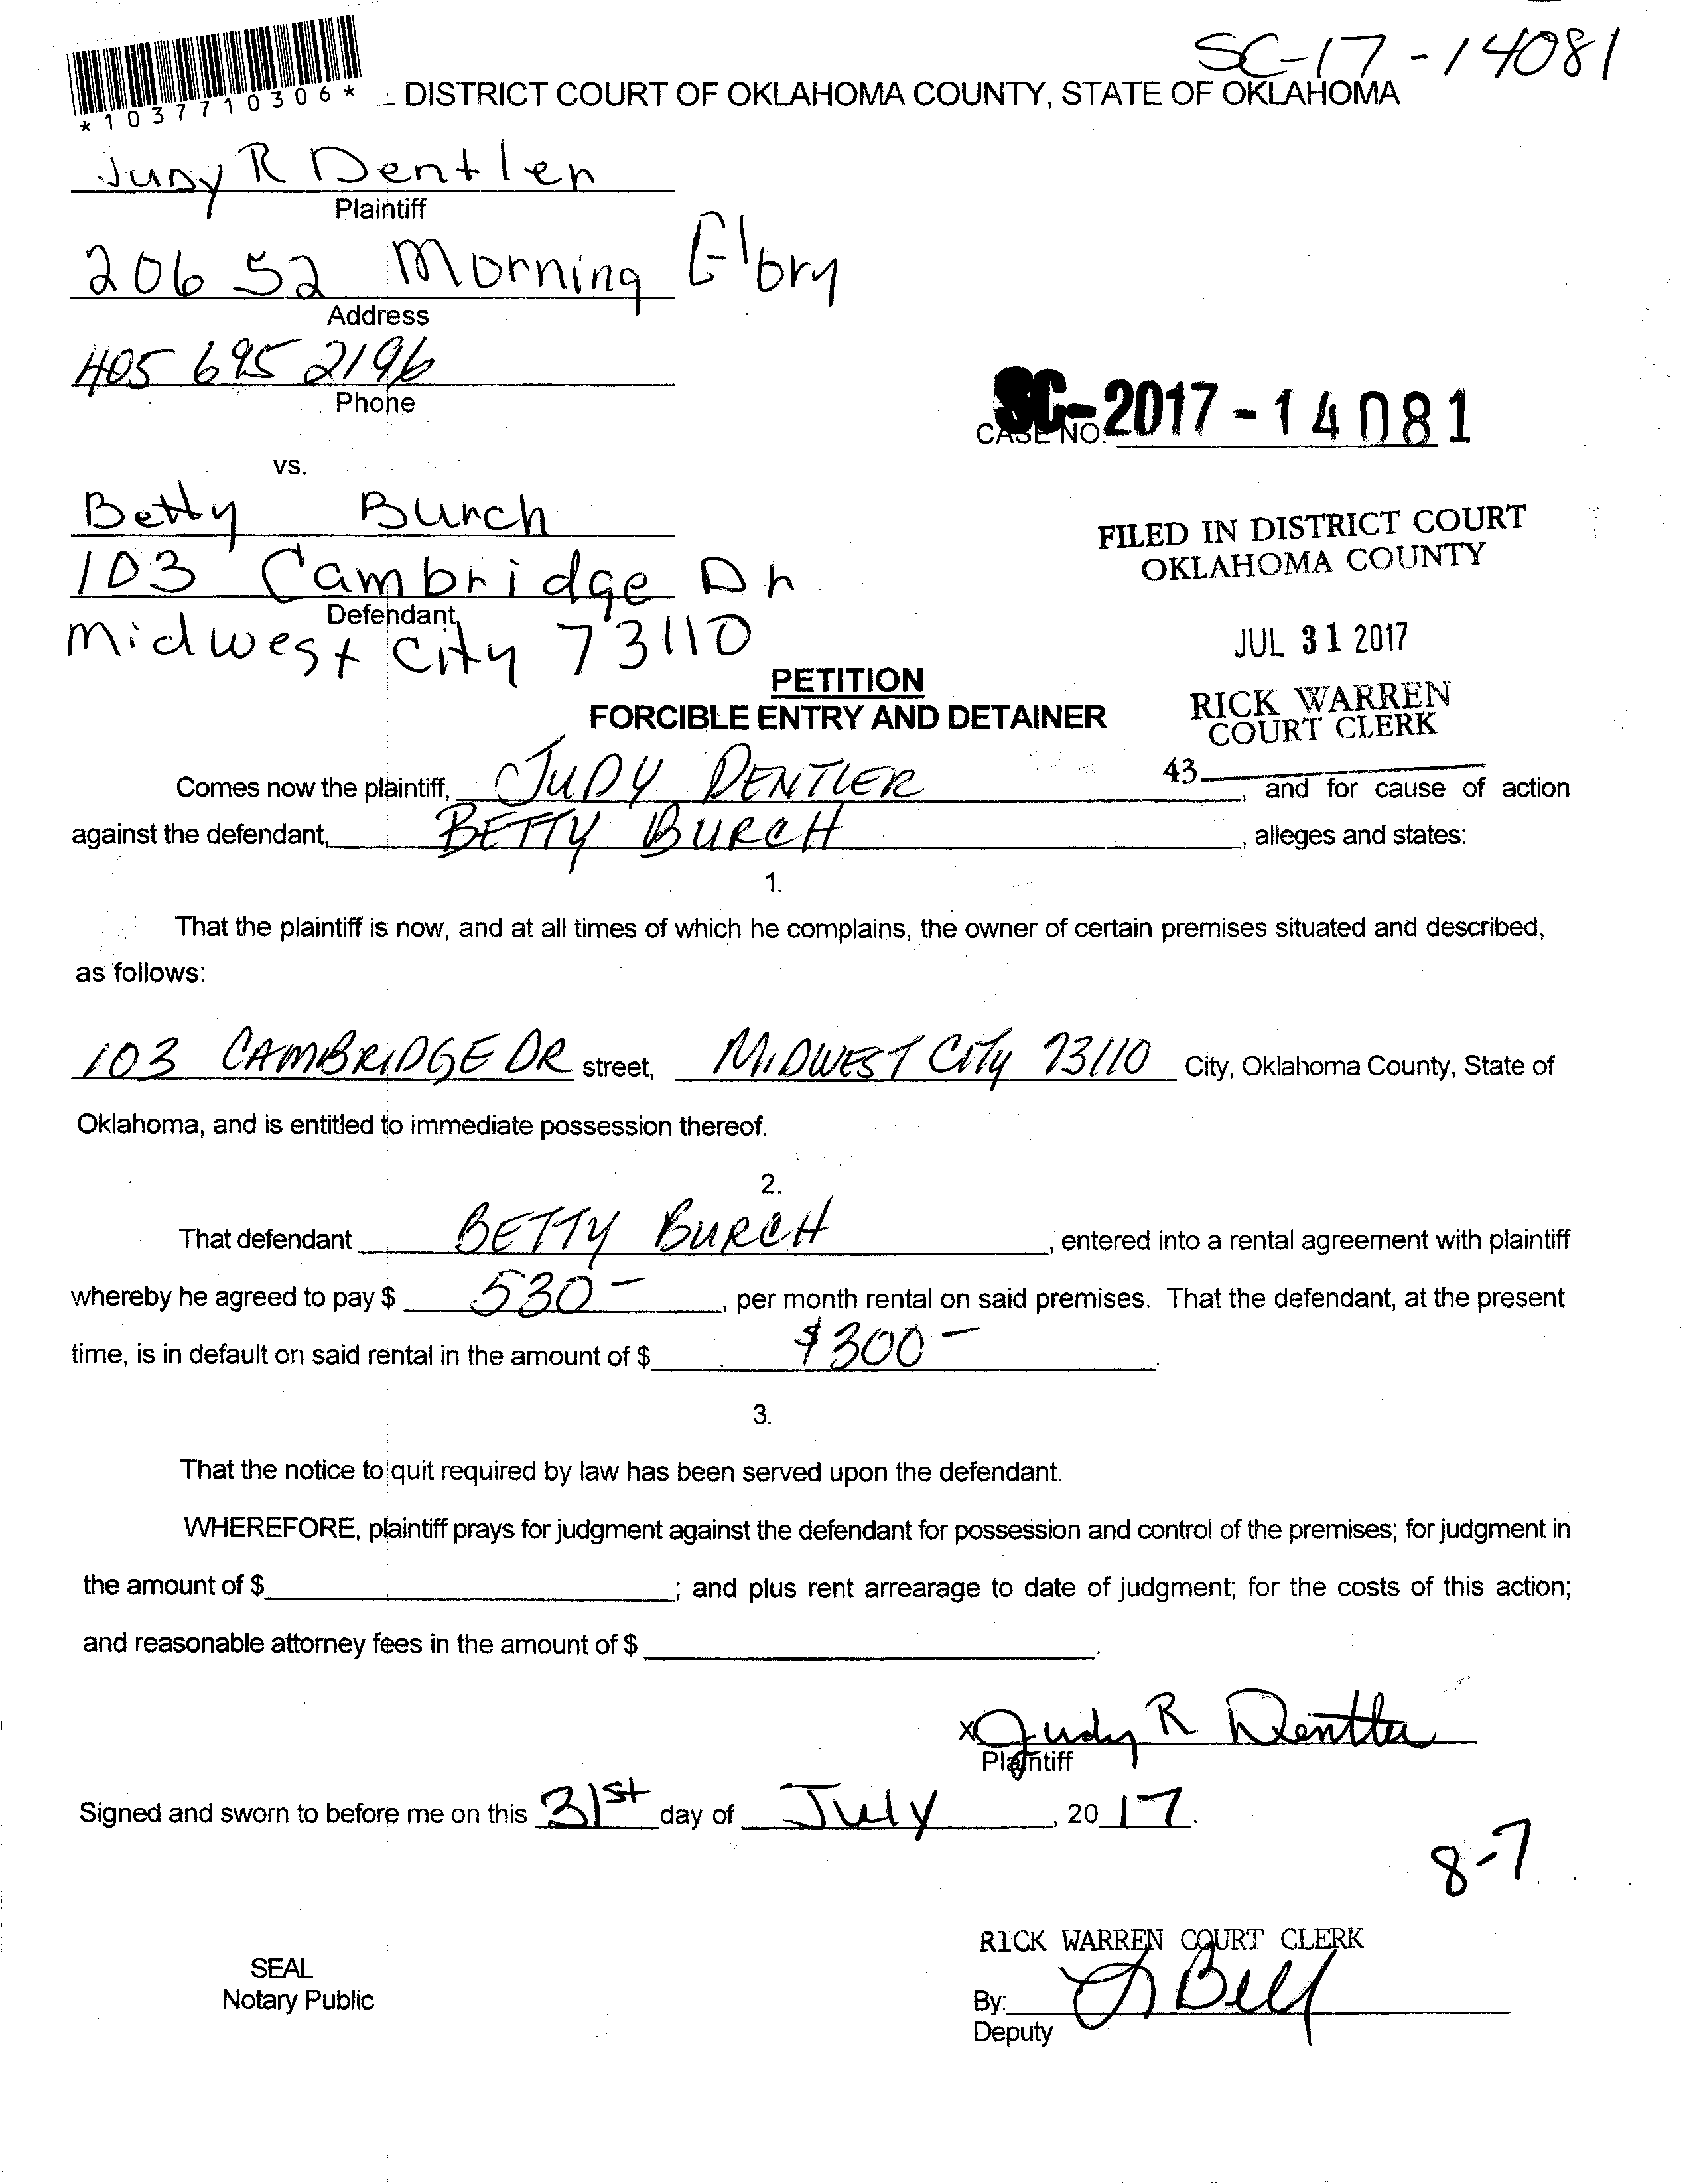 SC-17-14081
*1037710306*
DISTRICT COURT OF OKLAHOMA COUNTY, STATE OF OKLAHOMA
Judy R Dentler
Plaintiff
20652 Morning Glory
Address
405 695 2196
Phone
SC-2017-14081
CASE NO.
vs.
Betty Burch
103 Cambridge Dr
Defendant
Midwest City 73110
FILED IN DISTRICT COURT
OKLAHOMA COUNTY
JUL 31 2017
RICK WARREN
COURT CLERK
43
PETITION
FORCIBLE ENTRY AND DETAINER
Comes now the plaintiff, JUDY DENTLER, and for cause of action
against the defendant, BETTY BURCH, alleges and states:
1.
That the plaintiff is now, and at all times of which he complains, the owner of certain premises situated and described,
as follows:
103 CAMBRIDGE DR street, MIDWEST CITY 73110 City, Oklahoma County, State of
Oklahoma, and is entitled to immediate possession thereof.
2.
That defendant BETTY BURCH, entered into a rental agreement with plaintiff
whereby he agreed to pay $ 530-, per month rental on said premises. That the defendant, at the present
time, is in default on said rental in the amount of $ $300-.
3.
That the notice to quit required by law has been served upon the defendant.
WHEREFORE, plaintiff prays for judgment against the defendant for possession and control of the premises; for judgment in
the amount of $ ; and plus rent arrearage to date of judgment; for the costs of this action;
and reasonable attorney fees in the amount of $ .
x Judy R Dentler
Plaintiff
Signed and sworn to before me on this 31st day of July, 2017.
8-7
RICK WARREN COURT CLERK
SEAL
Notary Public
By: Bell
Deputy